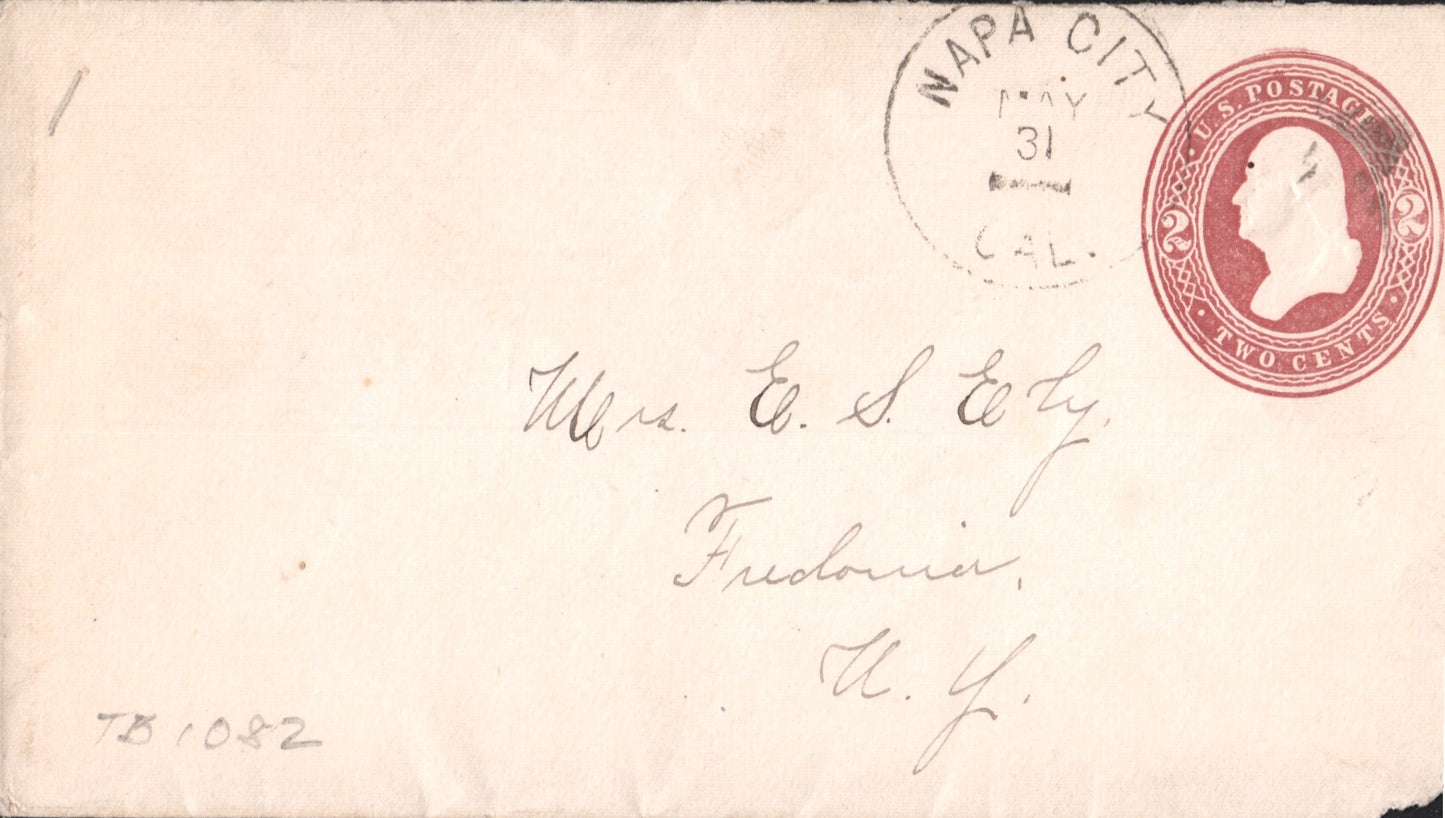 NAPA CITY
MAY
31
CAL.
U.S. POSTAGE
2 2
TWO CENTS
Mrs. E. S. Ely.
Fredonia,
N. Y.
TB 1082